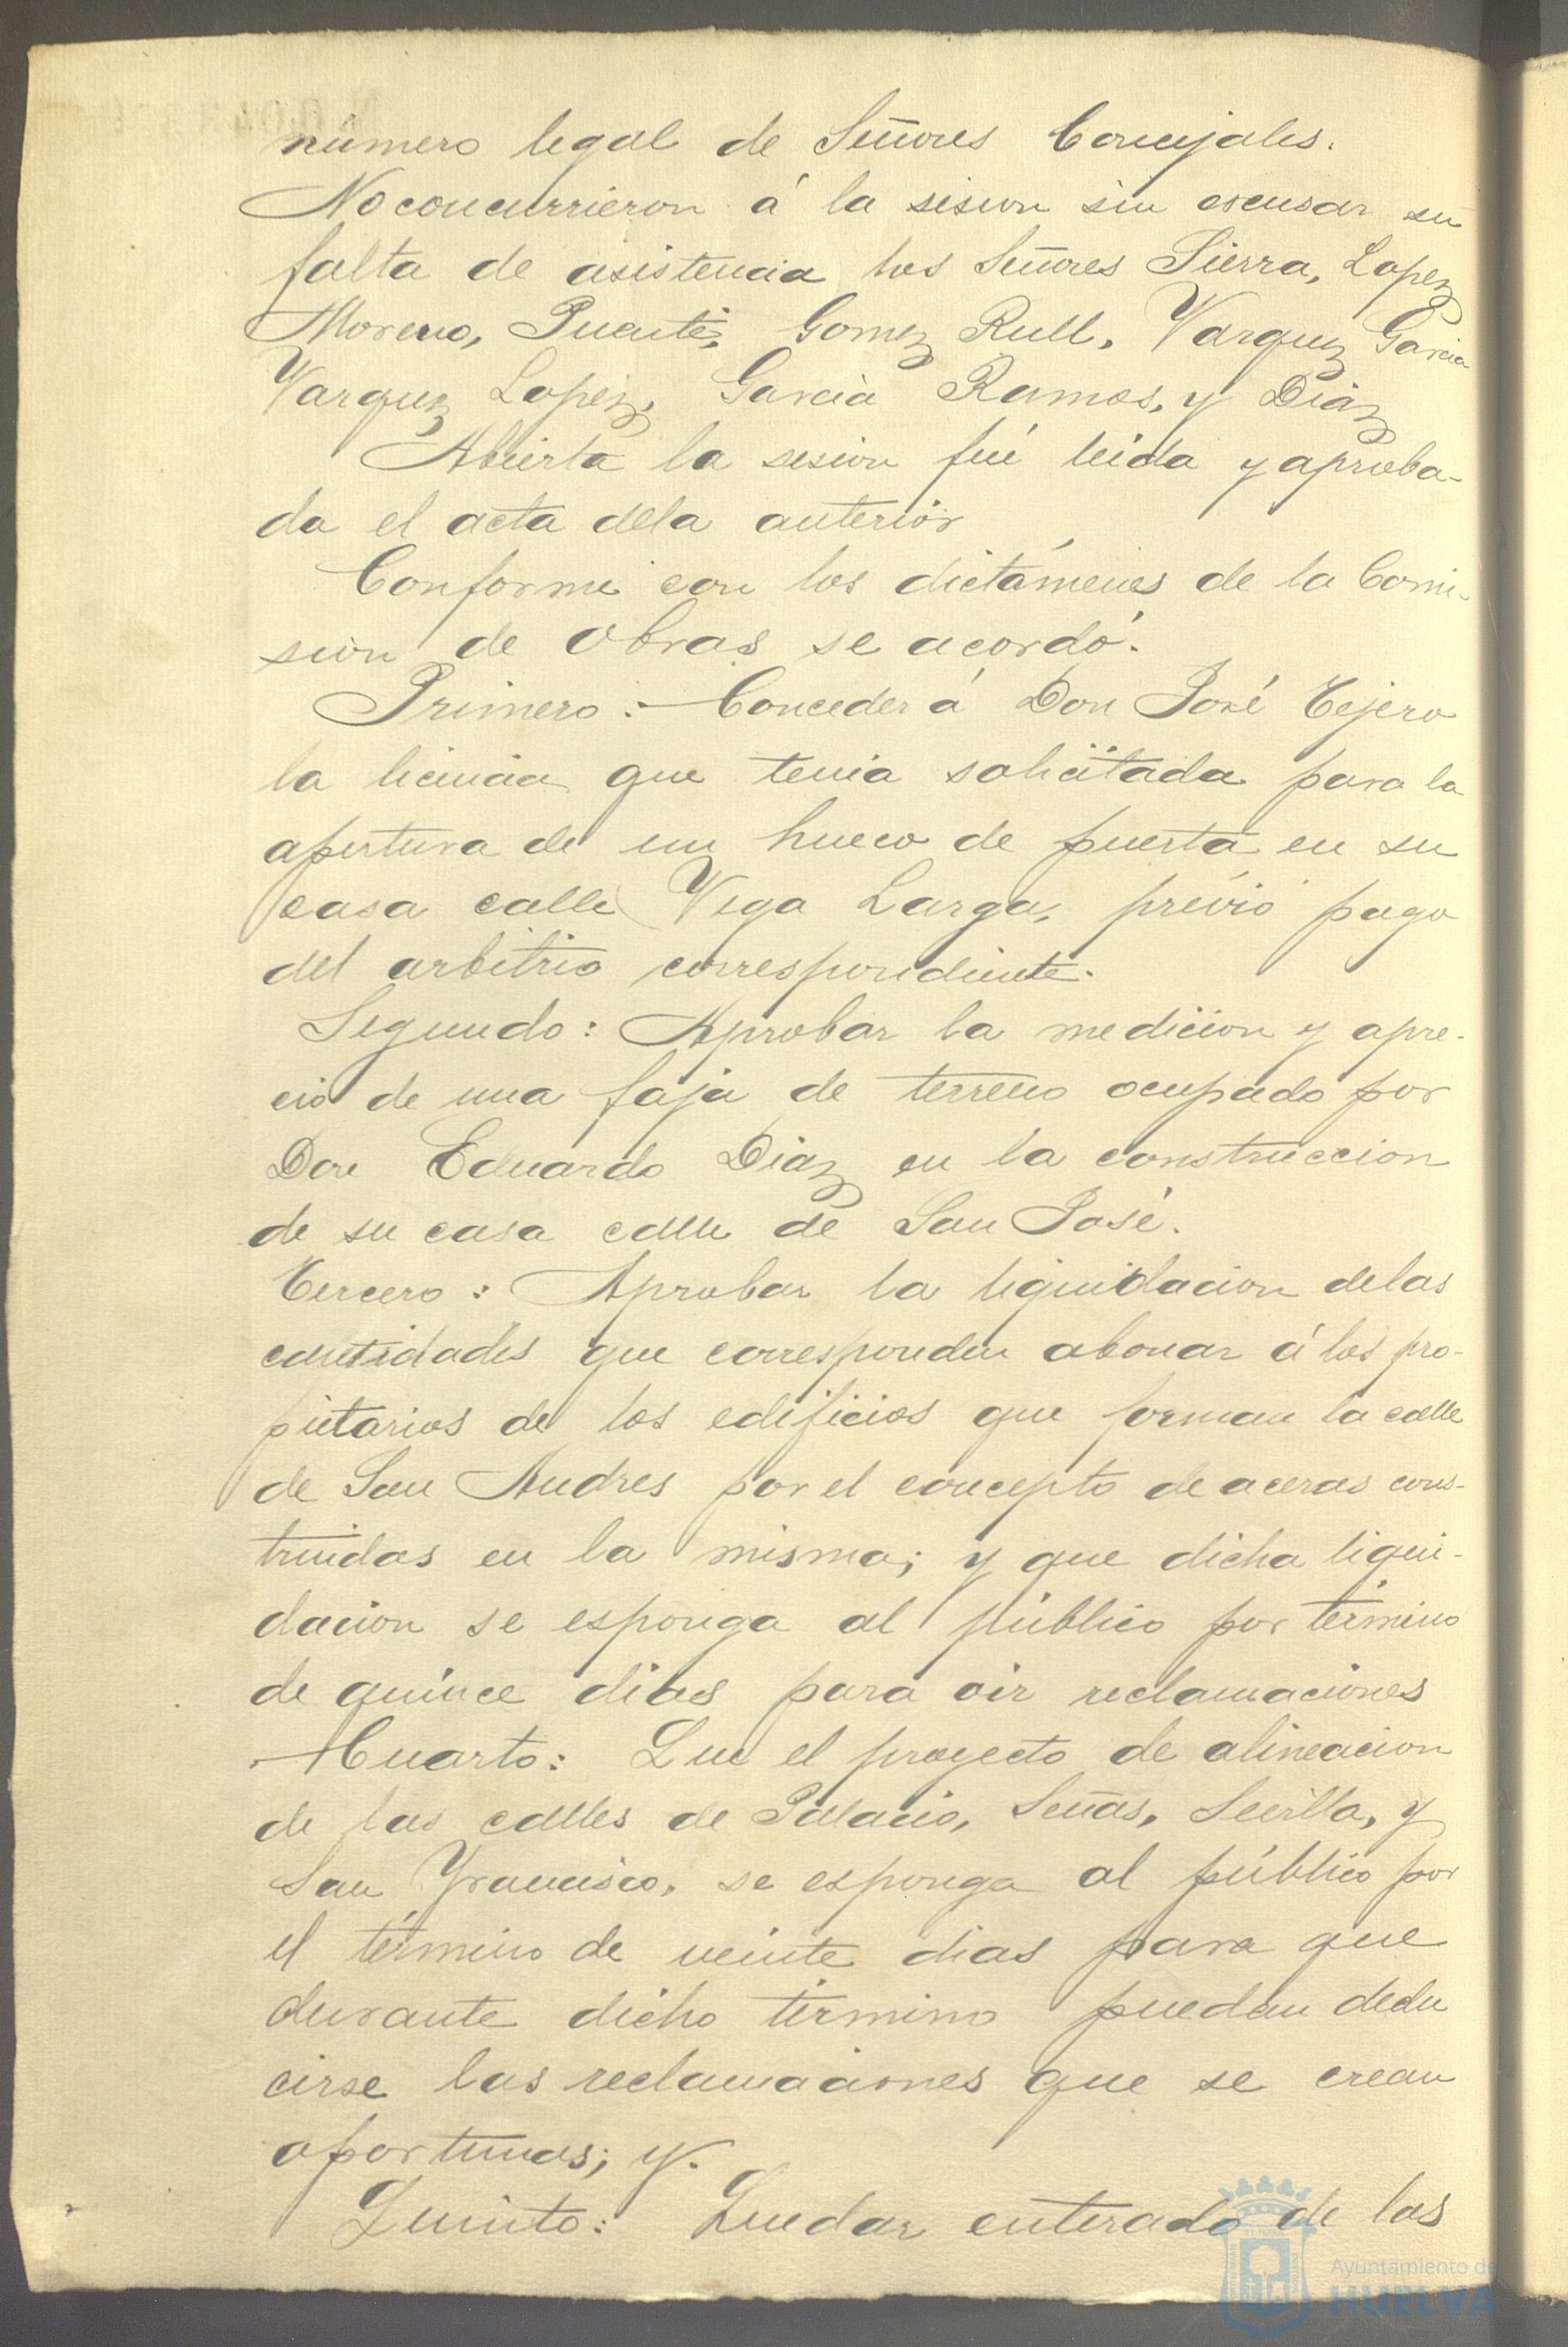 número legal de Señores Concejales.
No concurrieron á la sesion sin escusar su
falta de asistencia los Señores Sierra, Lopez
Moreno, Puente, Gomez Rull, Vazquez Garcia
Vazquez Lopez, Garcia Ramos, y Diaz
Abierta la sesion fué leida y aproba-
da el acta dela anterior
Conforme con los dictámenes de la Comi-
sion de Obras se acordó.
Primero: Conceder á Don José Tejero
la licencia que tenia solicitada para la
apertura de un hueco de puerta en su
casa calle Vega Larga, prévio pago
del arbitrio correspondiente.
Segundo: Aprobar la medicion y apre-
cio de una faja de terreno ocupado por
Don Eduardo Diaz en la construccion
de su casa calle de San José.
Tercero: Aprobar la liquidacion delas
cantidades que corresponden abonar á los pro-
pietarios de los edificios que forman la calle
de San Andres por el concepto de aceras cons-
truidas en la misma; y que dicha liqui-
dacion se esponga al público por término
de quince dias para oir reclamaciones
Cuarto: Que el proyecto de alineacion
de las calles de Palacio, Señas, Sevilla, y
San Francisco, se esponga al público por
el término de veinte dias para que
durante dicho término puedan dedu
cirse las reclamaciones que se crean
oportunas; y.
Quinto: Quedar enterado de las
Ayuntamiento de
HUELVA